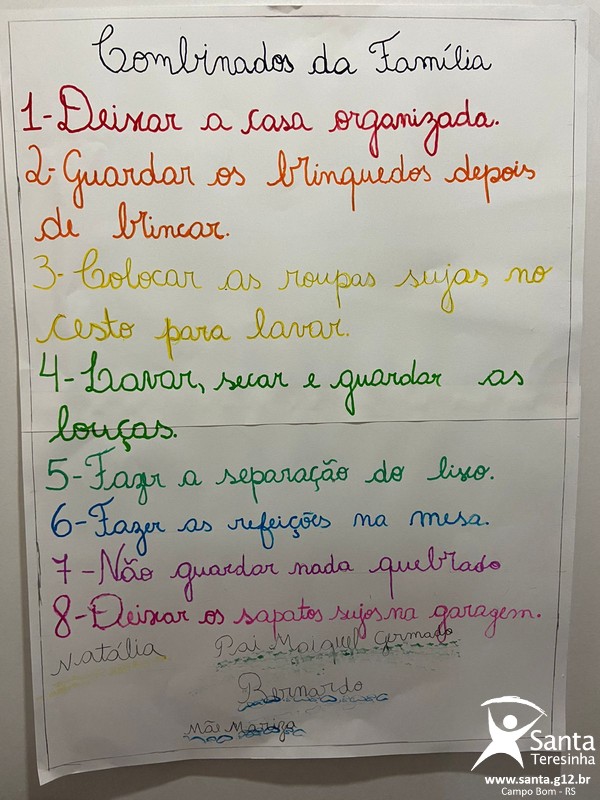 Combinados da Família
1-Deixar a casa organizada.
2-Guardar os brinquedos depois
de brincar.
3-Colocar as roupas sujas no
cesto para lavar.
4-Lavar, secar e guardar as
louças.
5-Fazer a separação do lixo.
6-Fazer as refeições na mesa.
7-Não guardar nada quebrado
8-Deixar os sapatos sujos na garagem.
Natália
Pai Maiquel Germado
Bernardo
Mãe Mariza
Santa
Teresinha
www.santa.g12.br
Campo Bom - RS